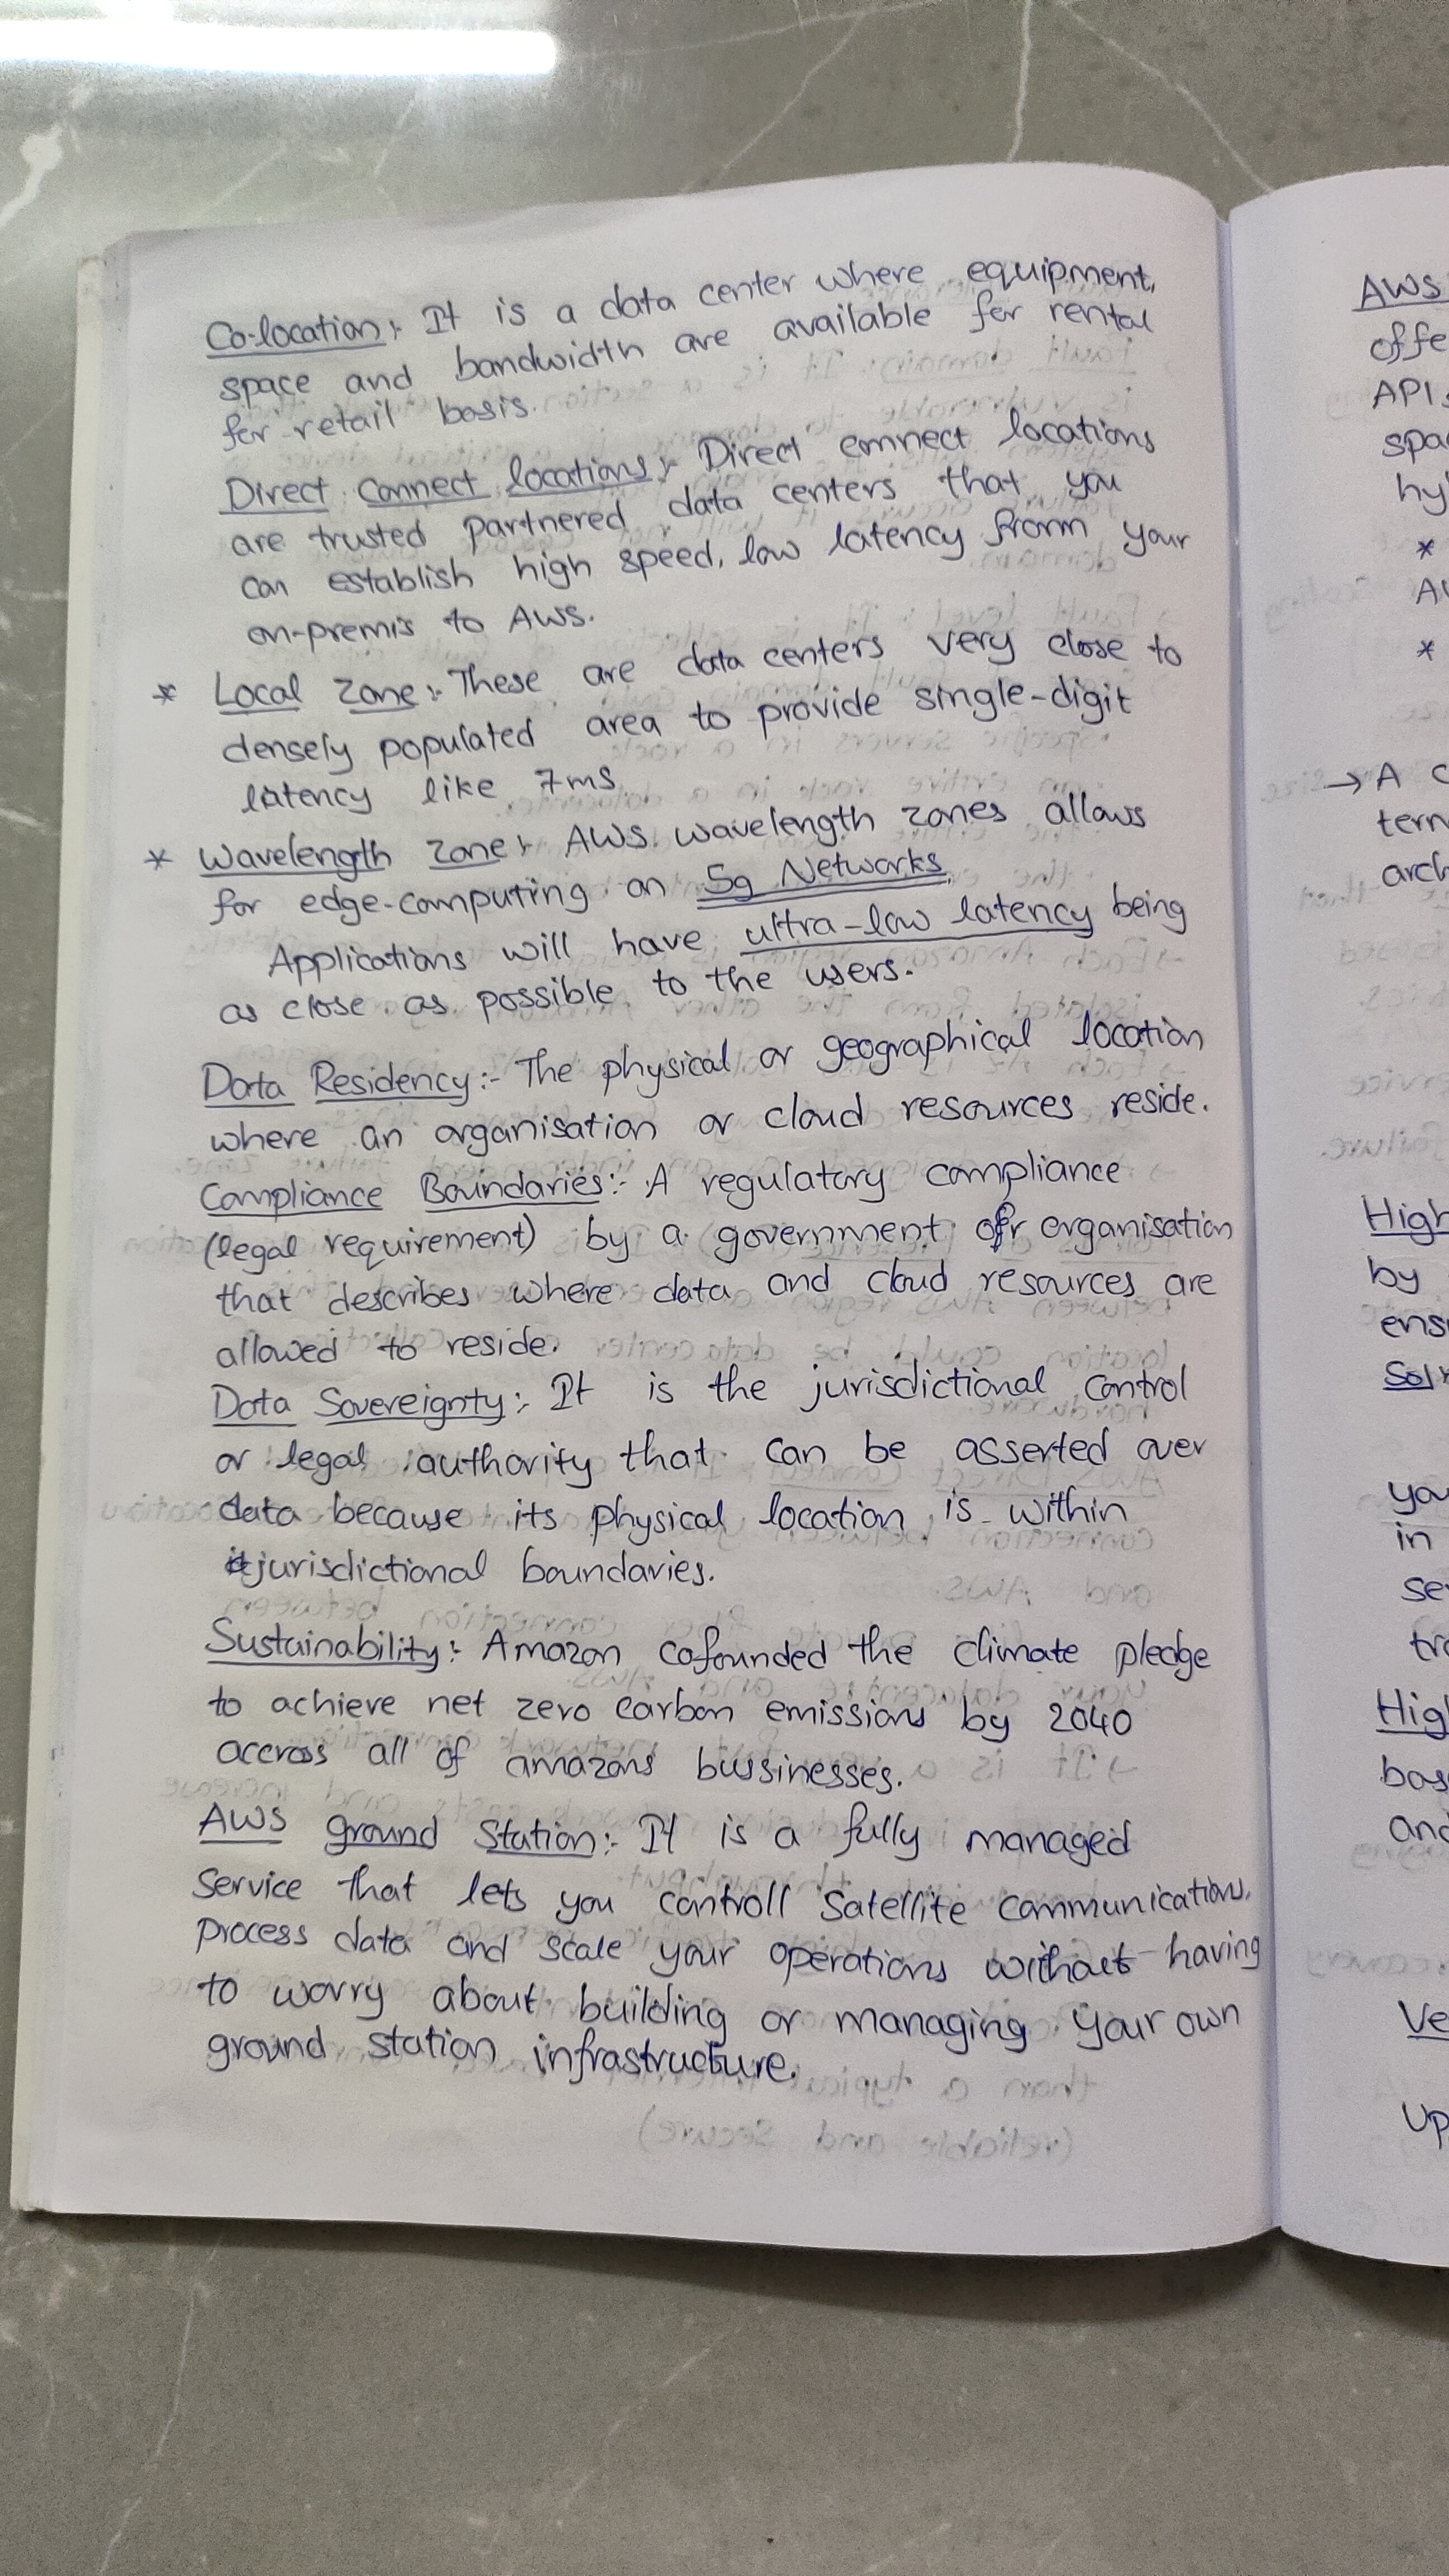 Co-location:- It is a data center where equipment,
space and bandwidth are available for rental
for retail basis.
Direct Connect locations:- Direct connect locations
are trusted partnered data centers that you
can establish high speed, low latency from your
on-premis to AWS.
* Local Zone:- These are data centers very close to
densely populated area to provide single-digit
latency like 7ms
* Wavelength Zone:- AWS wavelength zones allows
for edge-computing on 5g Networks.
Applications will have ultra-low latency being
as close as possible to the users.
Data Residency:- The physical or geographical location
where an organisation or cloud resources reside.
Compliance Boundaries:- A regulatory compliance
(legal requirement) by a government or organisation
that describes where data and cloud resources are
allowed to reside.
Data Sovereignty:- It is the jurisdictional control
or legal authority that can be asserted over
data because its physical location is within
jurisdictional boundaries.
Sustainability:- Amazon cofounded the climate pledge
to achieve net zero carbon emissions by 2040
accross all of amazons bussinesses.
AWS ground Station:- It is a fully managed
service that lets you controll satellite communication,
process data and scale your operations without having
to worry about building or managing your own
ground station infrastructure.
AWS
offe
API
spa
hy
*
*
→ A c
tern
arch
High
by
ens
Sol
you
in
se
tr
Hig
bas
and
Ve
Up